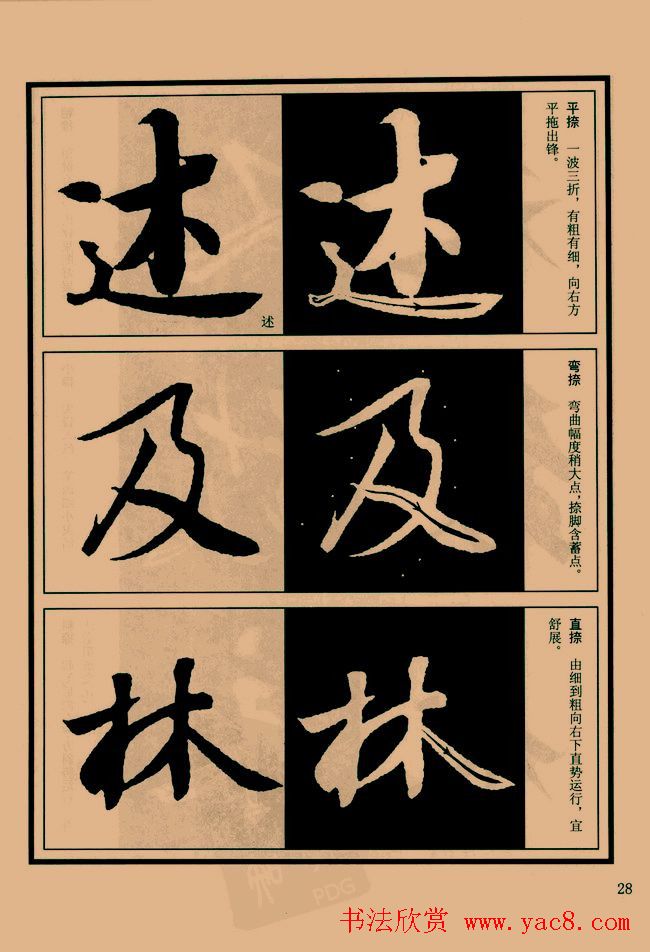 述
述
述
平捺 一波三折，有粗有细，向右方
平拖出锋。
及
及
弯捺 弯曲幅度稍大点，捺脚含蓄点。
林
林
直捺 由细到粗向右下直势运行，宜
舒展。
PDG
28
书法欣赏 www.yac8.com